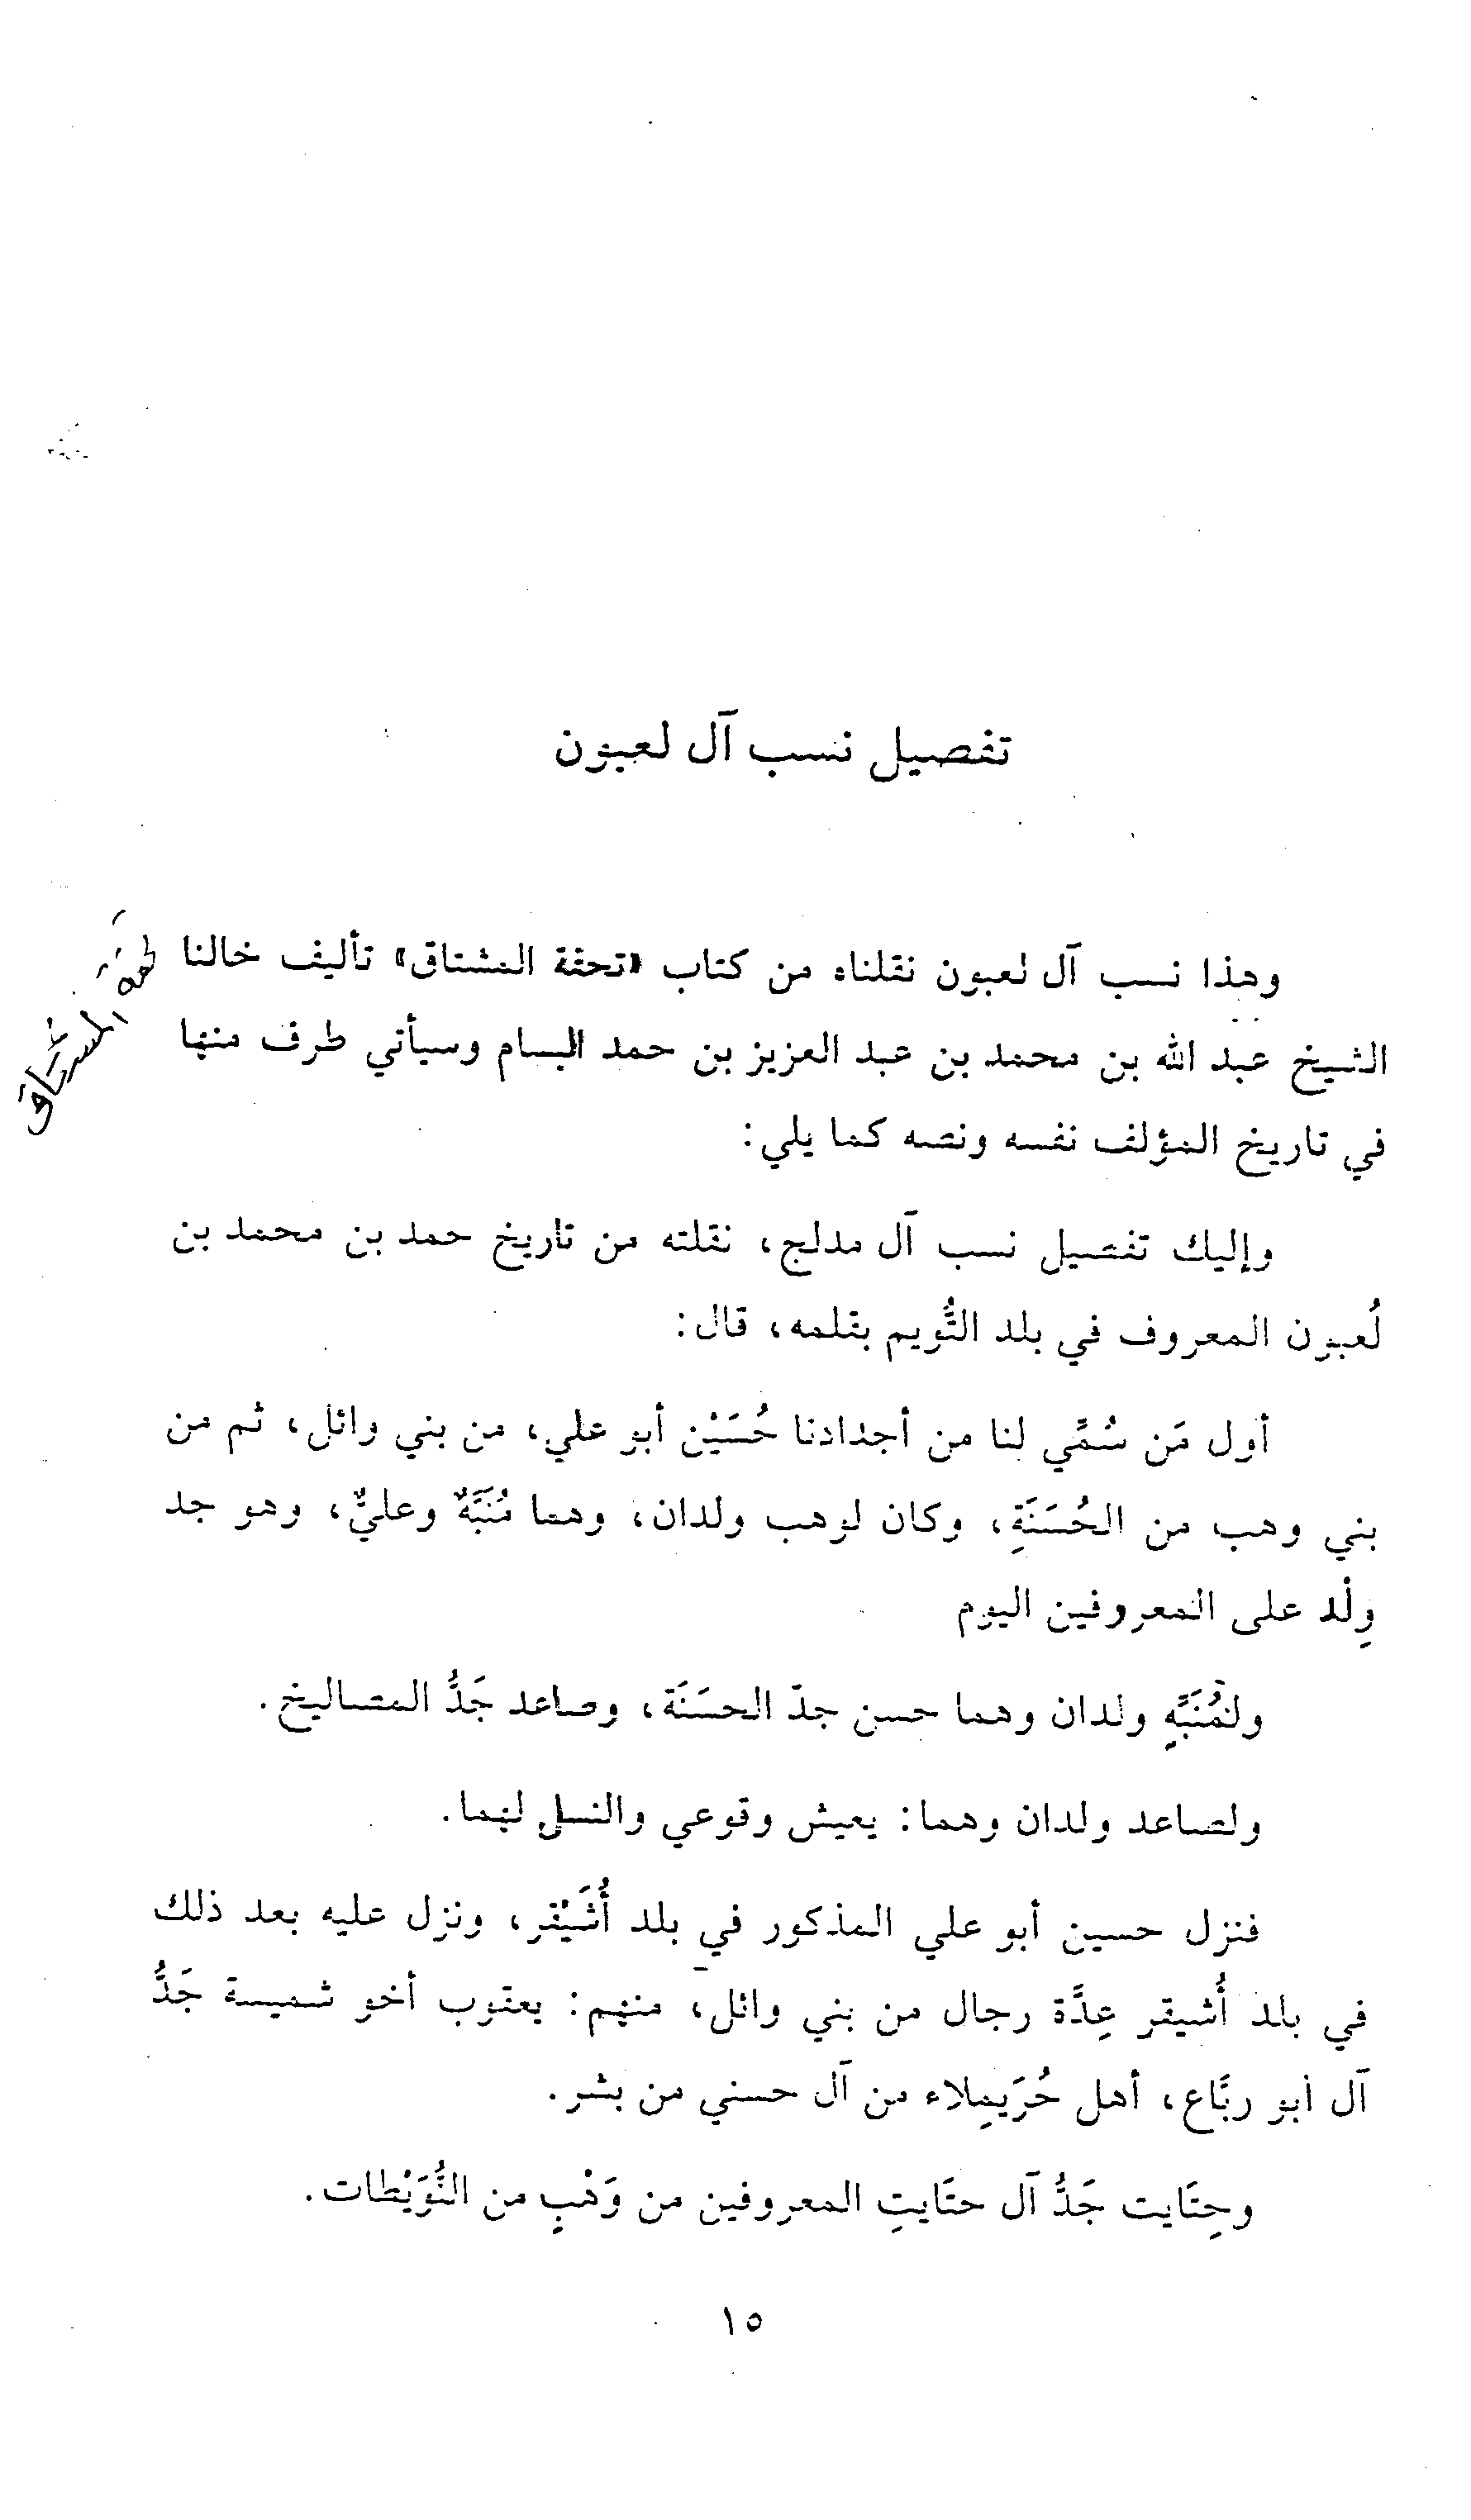 تفصيل نسب آل لعبون
وهذا نسب آل لعبون نقلناه من كتاب «تحفة المشتاق» تأليف خالنا
الشيخ عبد الله بن محمد بن عبد العزيز بن حمد البسام وسيأتي طرف منها
في تاريخ المؤلف نفسه ونصه كما يلي:
وإليك تفصيل نسب آل مدلج، نقلته من تاريخ حمد بن محمد بن
لُعبون المعروف في بلد التُّويم بقلمه، قال:
أول مَن سُمِّي لنا من أجدادنا حُسَيْن أبو علي، من بني وائل، ثم من
بني وهب من الحُسَنَةِ، وكان لوهب ولدان، وهما مُنَبَّهٌ وعليٌّ، وهو جد
وِلْد على المعروفين اليوم
ولمُنَبَّهٍ ولدان وهما حسن جدّ الحسَنَة، وصاعد جَدُّ المصاليخ.
ولصاعد ولدان وهما: يعيش وقوعي والنسل لهما.
فنزل حسين أبو علي المذكور في بلد أُشَيْقر، ونزل عليه بعد ذلك
في بلد أُشيقر عِدَّة رجال من بني وائل، منهم: يعقوب أخو شميسة جَدُّ
آل أبو ربَّاع، أهل حُرَيمِلاء من آل حسني من بشر.
وحِتَايت جَدُّ آل حتَايتِ المعروفين من وَهْبٍ من النُّوَيْطات.
١٥
تحفة المشتاق